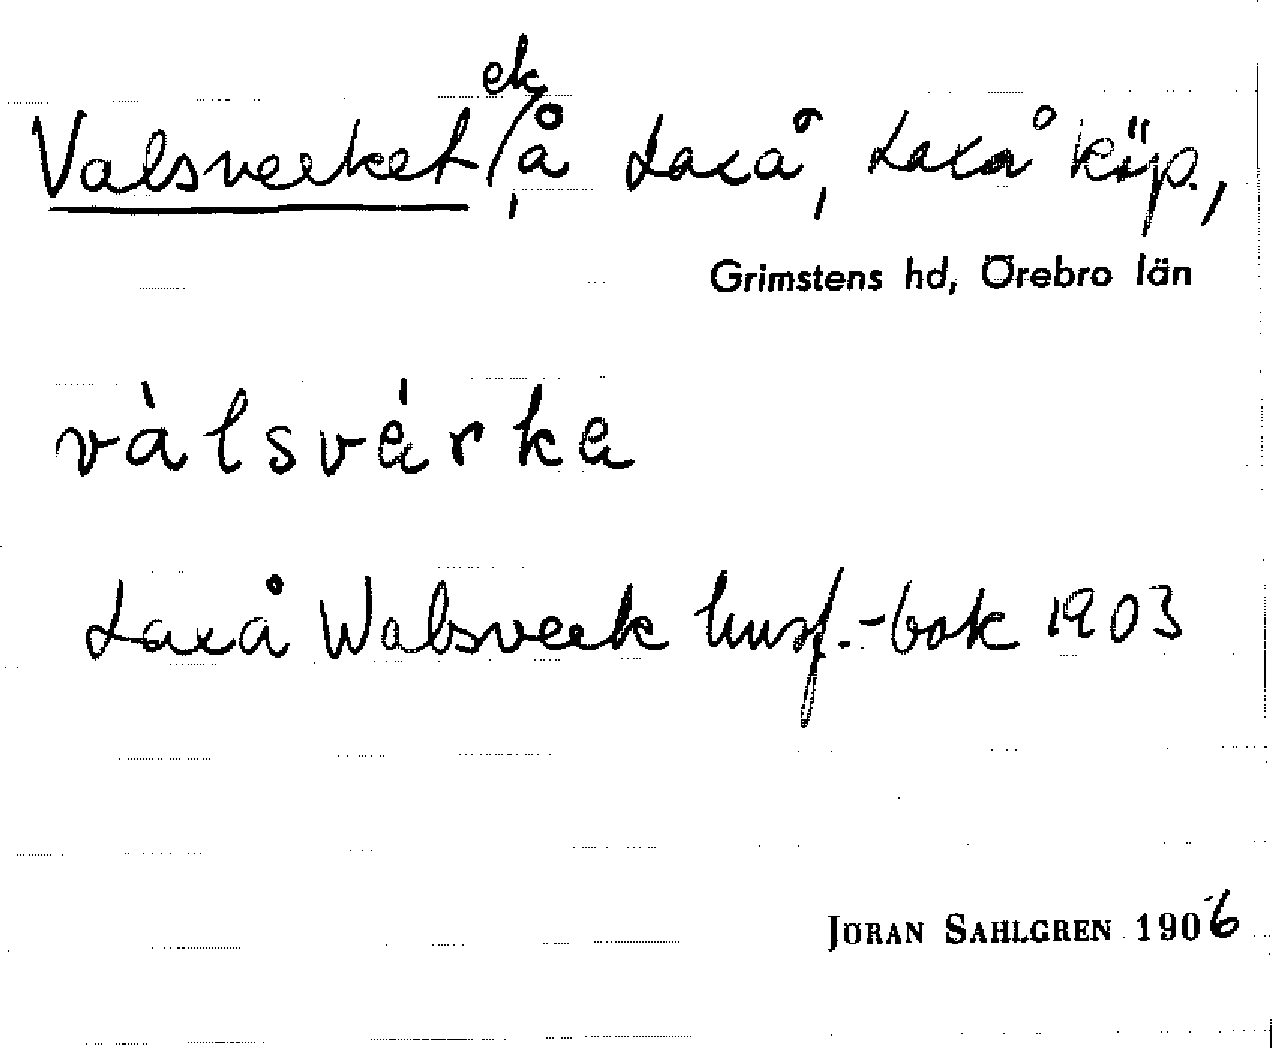 Valsverket, ek å Laxå, Laxå köp.,
Grimstens hd, Örebro län
vàlsvárka
Laxå Walsverk husf.-bok 1903
JÖRAN SAHLGREN 1906